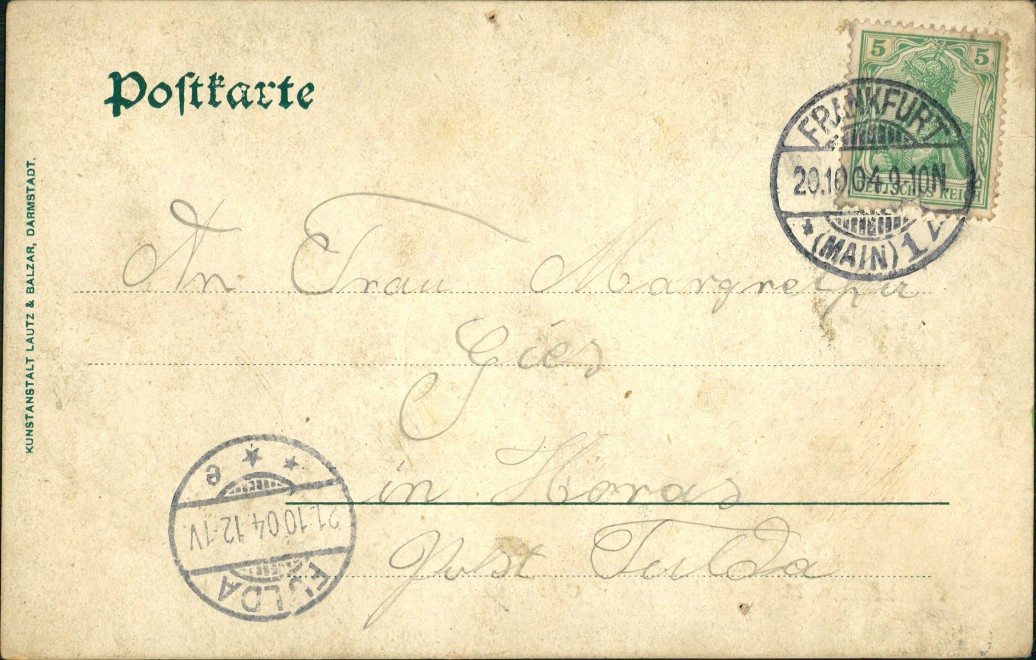 Postkarte
5 5
DEUTSCHES REICH
FRANKFURT
20.10.04.9-10N.
* (MAIN) 1
KUNSTANSTALT LAUTZ & BALZAR, DARMSTADT.
An Frau
Gies
in Horas
Post Fulda
e * *
21.10.04.12-1V.
FULDA